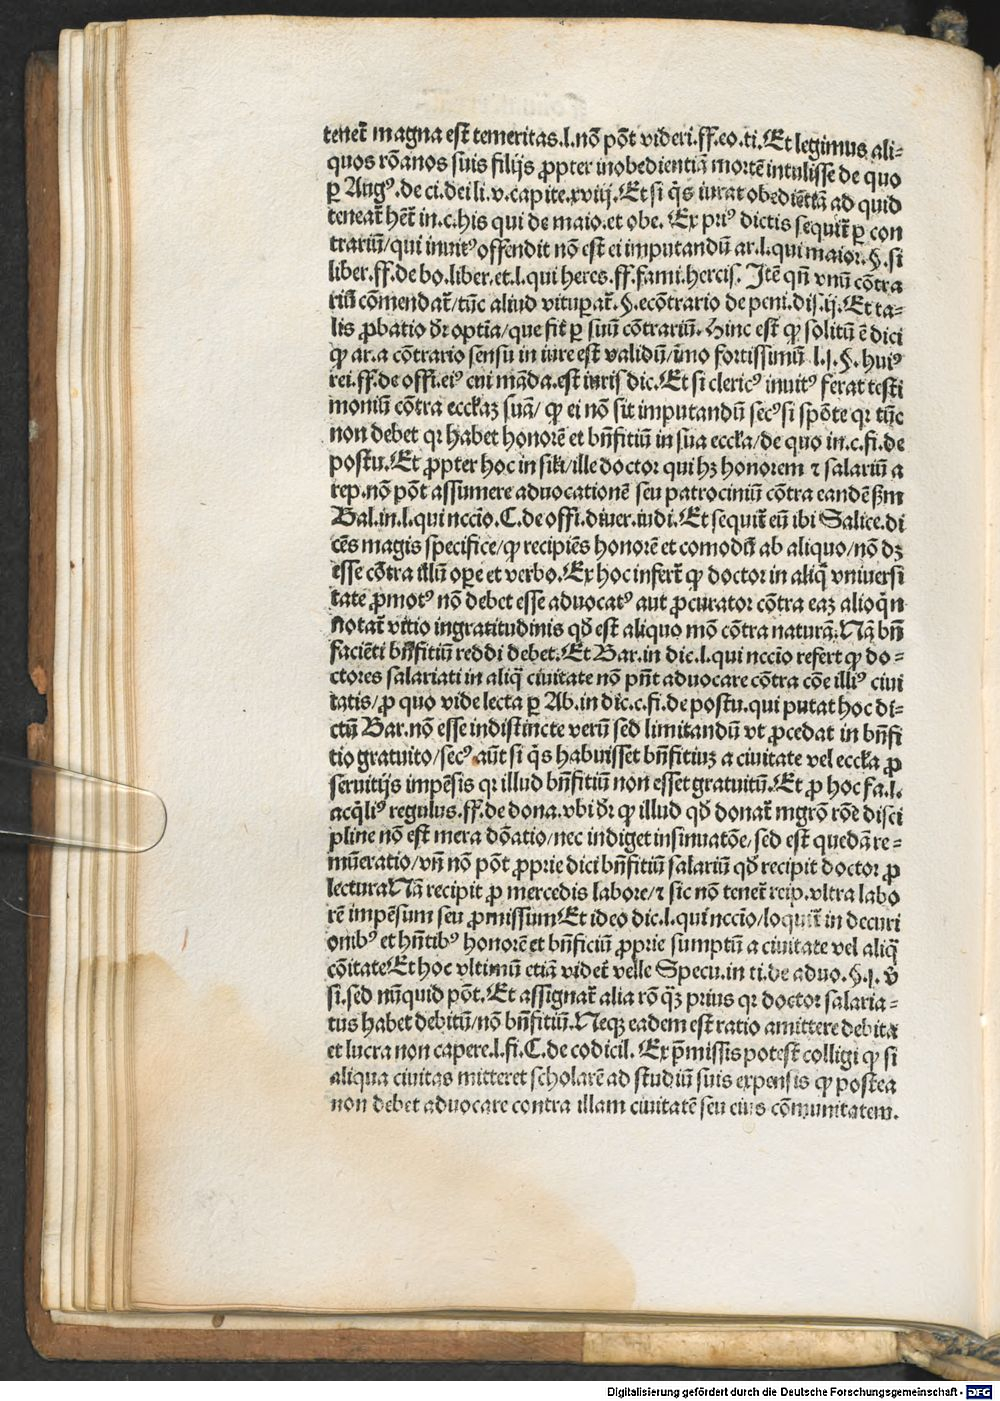 tenet̄ magna est̄ temeritas.l.nō pōt videri.ff.eo.ti.Et legimus ali⸗
quos rōanos suis filijs ꝓpter inobedientiā mortē intulisse de quo
ꝑ Augꝰ.de ci.dei li.v.capite.xviij.Et si q̄s iurat obediētiā ad quid
teneat̄ hēt̄ in.c.his qui de maio.et obe. Ex priꝰ dictis sequit̄ ꝑ con
trariū/qui inuitꝰ offendit nō est̄ ei imputandū ar.l.qui maior.§.si
liber.ff.de bo.liber.et.l.qui heres.ff.fami.hercis. Itē qn̄ vnū cōtra
riū cōmendat̄/tūc aliud vituꝑat̄.§.ecōtrario de peni.dis.ij.Et ta⸗
lis ꝓbatio dr̄ optīa/que fit̄ ꝑ suū cōtrariū. Hinc est̄ ꝙ solitū ē dici
ꝙ ar.a cōtrario sensu in iure est̄ validū/īmo fortissimū l.j.§.huiꝰ
rei.ff.de offi.eiꝰ cui māda.est iurisdic.Et si clericꝰ inuitꝰ ferat testi
moniū cōtra eccłaꝫ suā/ ꝙ ei nō sit imputandū secꝰ si spōte qr tūc
non debet qr habet honorē et bn̄fitiū in sua eccła/de quo in.c.fi.de
postu.Et ꝓpter hoc in sił̄i/ille doctor qui hꝫ honorem ⁊ salariū a
rep.nō pōt assumere aduocationē seu patrociniū cōtra eandē ẜm
Bal.in.l.qui nccīo.C.de offi.diuer.iudi.Et sequit̄ eū ibi Salice.di
cēs magis specifice/ꝙ recipiēs honorē et comodū ab aliquo/nō dꝫ
esse cōtra illū oꝑe et verbo.Ex hoc infert̄ ꝙ doctor in aliq̄ vniuersi
tate ꝓmotꝰ nō debet esse aduocatꝰ aut ꝓcurator cōtra eaꝫ alioq̄n
notat̄ vitio ingratitudinis qd̄ est̄ aliquo mō cōtra naturā.Nā bn̄
faciēti bn̄fitiū reddi debet.Et Bar.in dic.l.qui nccīo refert ꝙ do⸗
ctores salariati in aliq̄ ciuitate nō pn̄t aduocare cōtra cōe illiꝰ ciui
tatis/ꝓ quo vide lecta ꝑ Ab.in dic.c.fi.de postu.qui putat hoc di⸗
ctū Bar.nō esse indistincte verū sed limitandū vt ꝓcedat in bn̄fi
tio gratuito/secꝰ aūt si q̄s habuisset bn̄fitiuꝫ a ciuitate vel eccła ꝓ
seruitijs impēsis qr illud bn̄fitiū non esset gratuitū.Et ꝓ hoc fa.l.
acq̄liꝰ regulus.ff.de dona.vbi dr̄ ꝙ illud qd̄ donat̄ mgrō rōe disci
pline nō est̄ mera dōatio/nec indiget insinuatōe/sed est̄ quedā re⸗
mūeratio/vn̄ nō pōt ꝓprie dici bn̄fitiū salariū qd̄ recipit doctor ꝓ
lectura Nā recipit ꝓ mercedis labore/⁊ sic nō tenet̄ reip.vltra labo
rē impēsum seu ꝓmissum Et ideo dic.l.qui nccīo/loquit̄ in decuri
onibꝰ et hn̄tibꝰ honorē et bn̄ficiū ꝓprie sumptū a ciuitate vel aliq̄
cōitate Et hoc vltimū etiā videt̄ velle Specu.in ti.de aduo.§.j. v̄
si.sed nūquid pōt. Et assignat̄ alia rō q̄ꝫ prius qr doctor salaria⸗
tus habet debitū/nō bn̄fitiū.Neqꝫ eadem est̄ ratio amittere debita
et lucra non capere.l.fi.C.de codicil. Ex p̄missis potest̄ colligi ꝙ si
aliqua ciuitas mitteret scholarē ad studiū suis expensis ꝙ postea
non debet aduocare contra illam ciuitatē seu eius cōmunitatem.
Digitalisierung gefördert durch die Deutsche Forschungsgemeinschaft - DFG